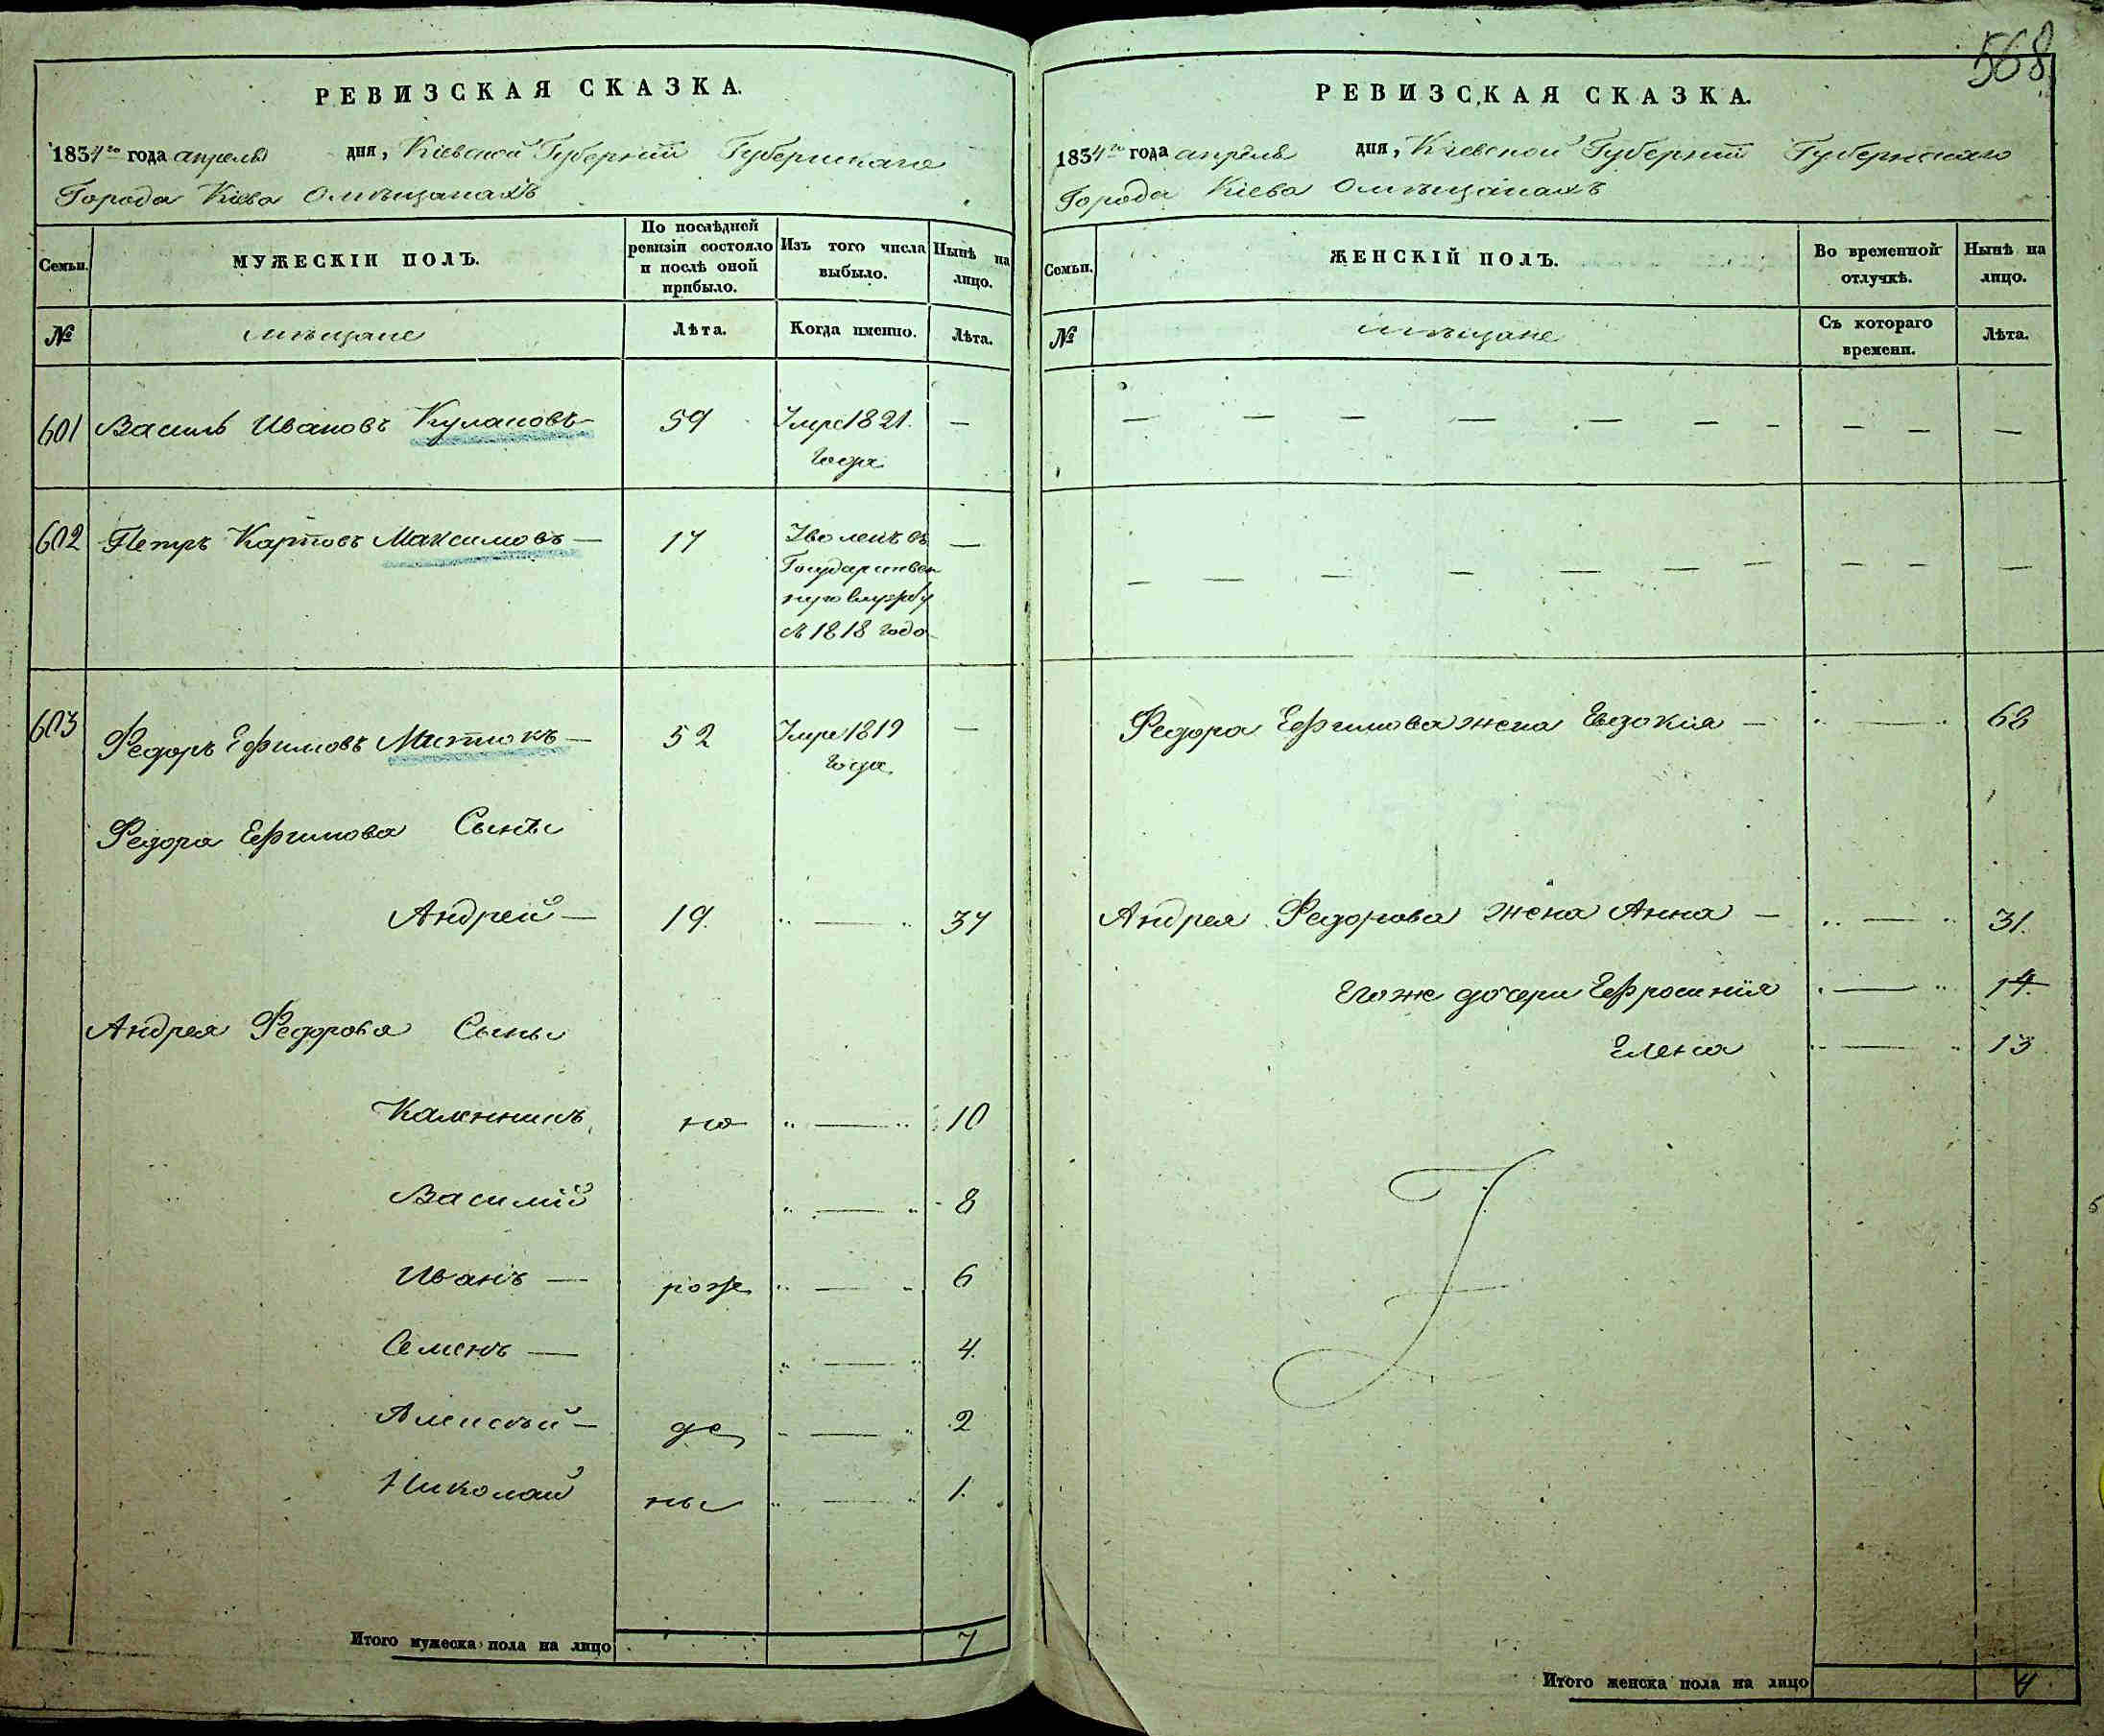 568
РЕВИЗСКАЯ СКАЗКА.
1834го года апреля дня, Кіевской Губерніи Губернскаго
Города Кіева О мѣщанахъ
Семьи.
МУЖЕСКІЙ ПОЛЪ.
По послѣдней ревизіи состояло и послѣ оной прибыло.
Изъ того числа выбыло.
Нынѣ на лицо.
№
мѣщане
Лѣта.
Когда именно.
Лѣта.
601 Василь Ивановъ 59 Умре 1821. —
года
602 Петръ Карповъ Максимовъ — 17 —
Государствен
ную службу
1818 года
603 Федоръ Ефимовъ — 52 Умре 1819 —
года
Федора Ефимова Сыны
Андрей — 19. 34
Андрея Федорова Сыны
но 10
Василій 8
Иванъ — рож 6
Семенъ — 4.
Алексѣй — де 2
Николай ны 1.
Итого мужеска пола на лицо 7
РЕВИЗСКАЯ СКАЗКА.
1834го года апреля дня, Кіевской Губерніи Губернскаго
Города Кіева О мѣщанахъ
Семьи.
ЖЕНСКІЙ ПОЛЪ.
Во временной отлучкѣ.
Нынѣ на лицо.
№
мѣщане
Съ котораго времени.
Лѣта.
Федора Ефимова жена Евдокия —
Андрея Федорова жена Анна — 31.
Егоже дочери Ефросинія 14.
Елена 13
Итого женска пола на лицо 4